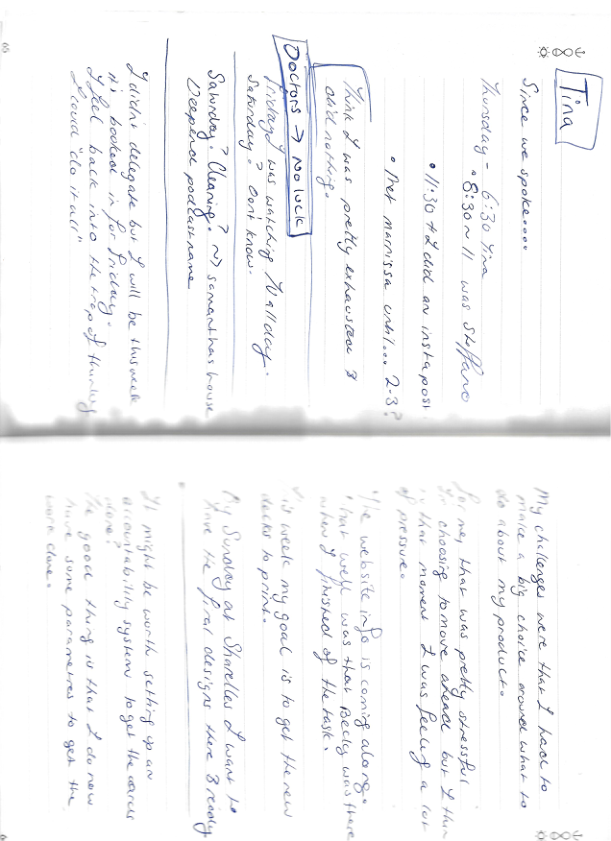 Tina
Since we spoke....
Thursday - 6:30 Tina
• 8:30 ~ 11 was Steffano
• 11:30 I did an instapost.
• Met marrissa until... 2-3?
Think I was pretty exhausted &
did nothing.
Doctors → No luck
Friday I was watching all day.
Saturday? Don't know.
Saturday? Cleaning? ~> samanthas house
Deepend podcast name
I didn't delegate but I will be this week
it's booked in for friday.
I fell back into the trap of thinking
I could "do it all"
65
My challenges were that I had to
make a big choice around what to
do about my product.
For me, that was pretty stressful
in choosing to move ahead but I
in that moment I was feeling a lot
of pressure.
The website info is coming along.
What well was that Becky was there
when I finished of the task.
this week my goal is to get the new
decks to print.
My Sunday at Sharelles I want to
have the final designs there & ready
•
It might be worth setting up an
accountability system to get the cards
done?
The good thing is that I do now
have some parametres to get the
work done.